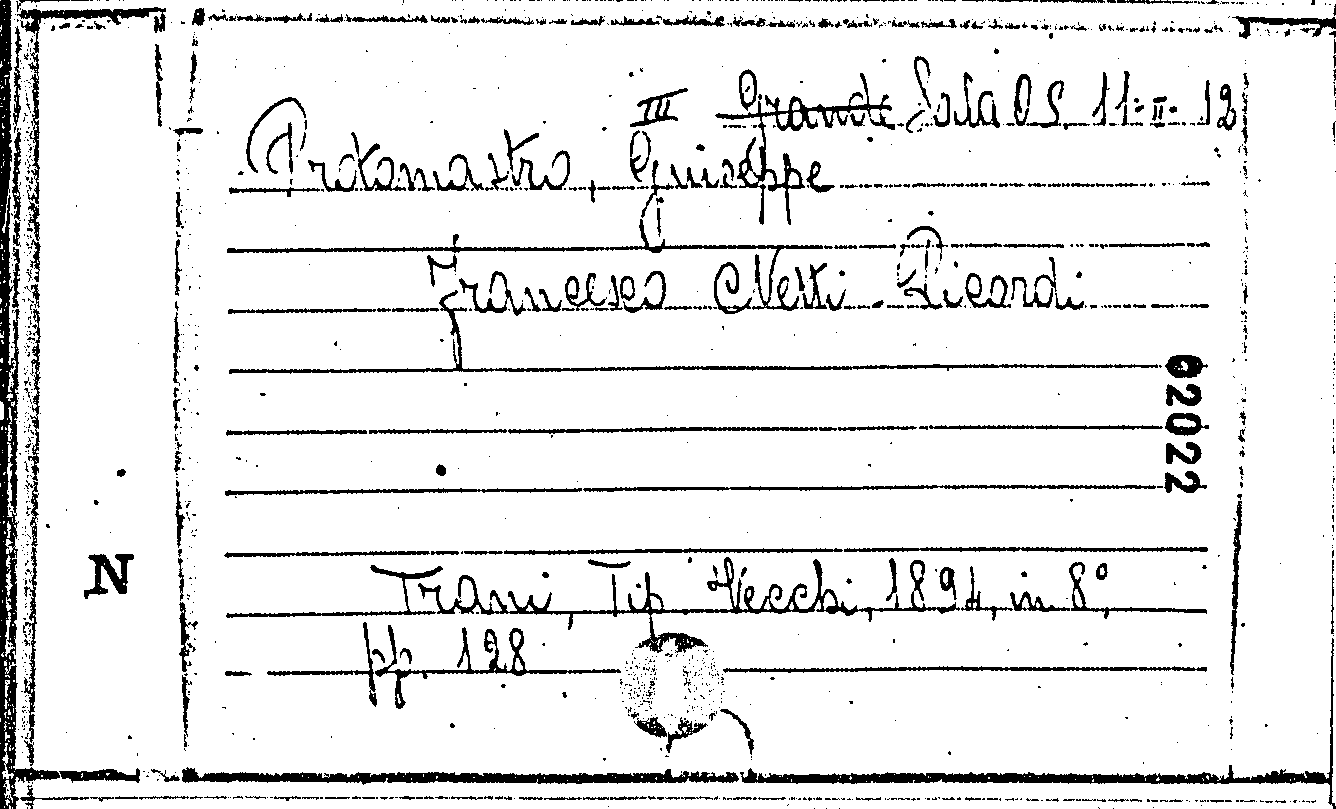 III Grande Sala O S. 11-II-12
Protomastro, Giuseppe
Francesco Netti. Ricordi
02022
N
Trani, Tip. Vecchi, 1894, in 8°,
pp. 128